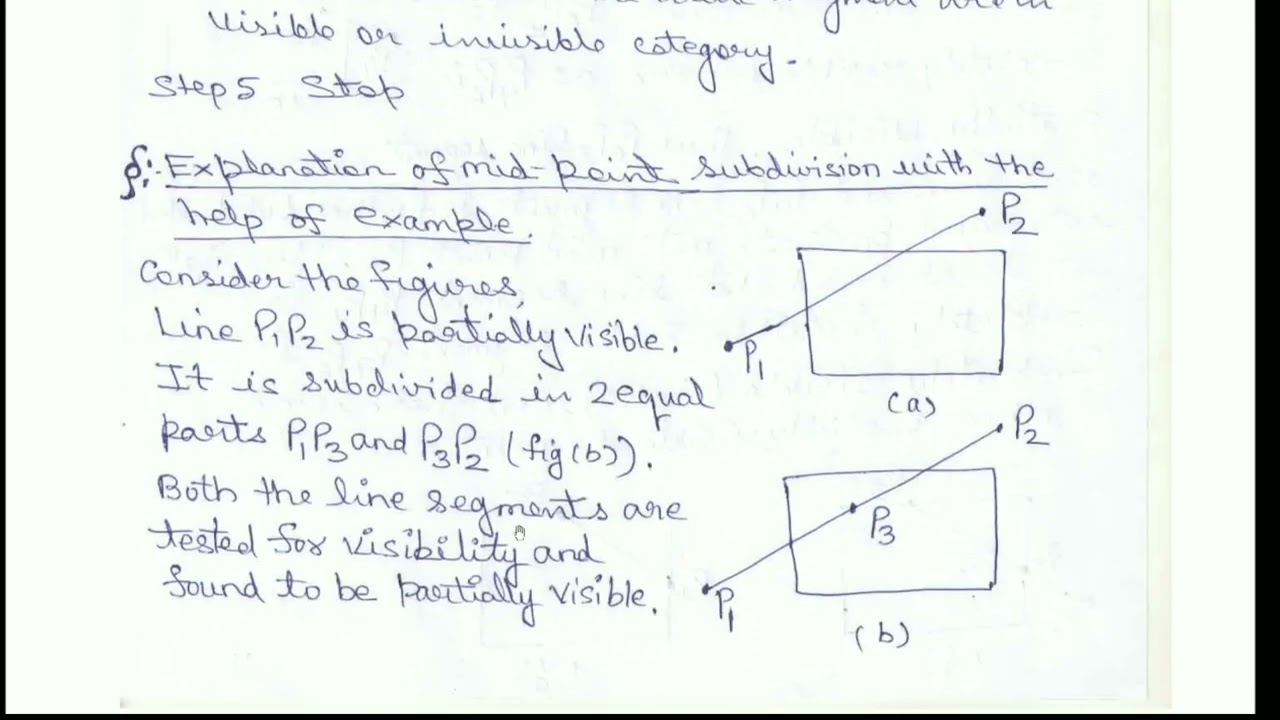 visible or invisible category.
Step 5 Stop
Explanation of mid-point subdivision with the
help of example.
Consider the figures,
Line P₁P₂ is partially visible.
It is subdivided in 2 equal
parts P₁P₃ and P₃P₂ (fig (b)).
Both the line segments are
tested for visibility and
found to be partially visible.
P₂
P₁
(a)
P₂
P₃
P₁
(b)